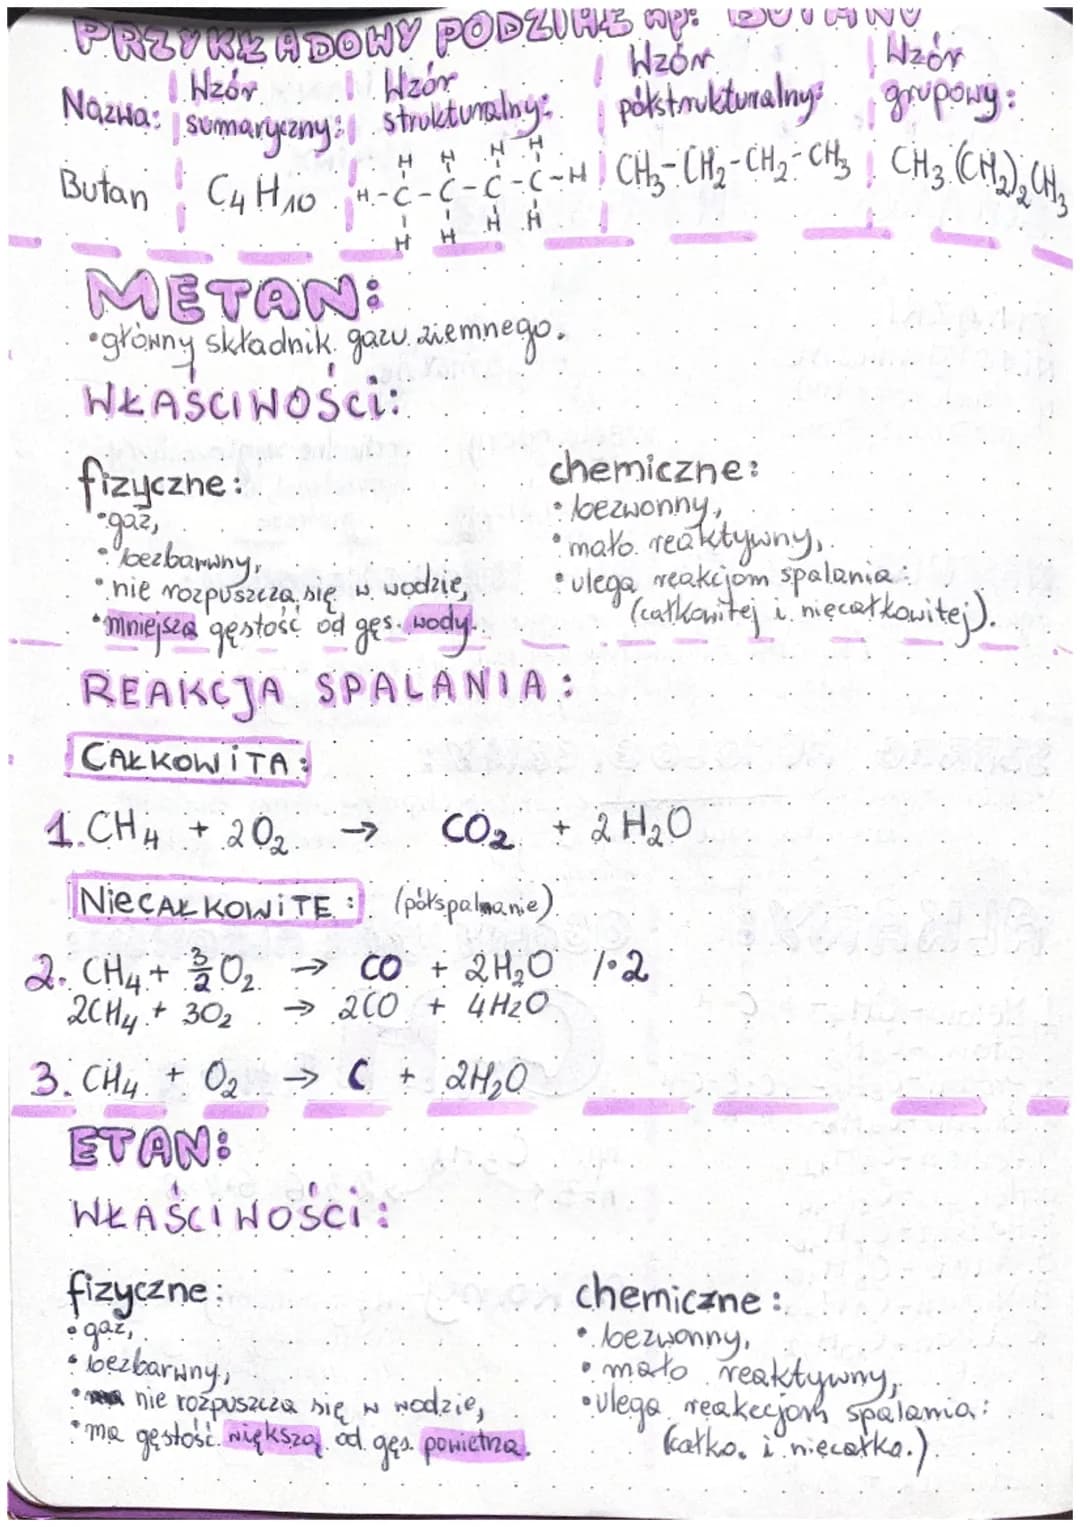 PRZYKŁADOWY PODZIAŁ np: BUTANU
Nazwa: Wzór sumaryczny: Wzór strukturalny: Wzór półstrukturalny: Wzór grupowy:
H H H H
Butan C₄H₁₀ H-C-C-C-C-H CH₃-CH₂-CH₂-CH₃ CH₃(CH₂)₂CH₃
H H H H
METAN:
•główny składnik gazu ziemnego.
WŁAŚCIWOŚCi:
fizyczne:
•gaz,
•bezbarwny,
•nie rozpuszcza się w wodzie,
•mniejsza gęstość od gęs. wody.
chemiczne:
•bezwonny,
•mało reaktywny,
•ulega reakcjom spalania:
(całkowitej i niecałkowitej).
REAKCJA SPALANIA:
CAŁKOWiTA:
1. CH₄ + 2O₂ → CO₂ + 2H₂O
NiECAŁKOWiTE: (półspalanie)
2. CH₄ + 3/2 O₂ → CO + 2H₂O /•2
2CH₄ + 3O₂ → 2CO + 4H₂O
3. CH₄ + O₂ → C + 2H₂O
ETAN:
WŁAŚCIWOŚCi:
fizyczne:
•gaz,
•bezbarwny,
•nie rozpuszcza się w wodzie,
•ma gęstość większą od gęs. powietrza.
chemiczne:
•bezwonny,
•mało reaktywny,
•ulega reakcjom spalania:
(całko. i niecałko.)